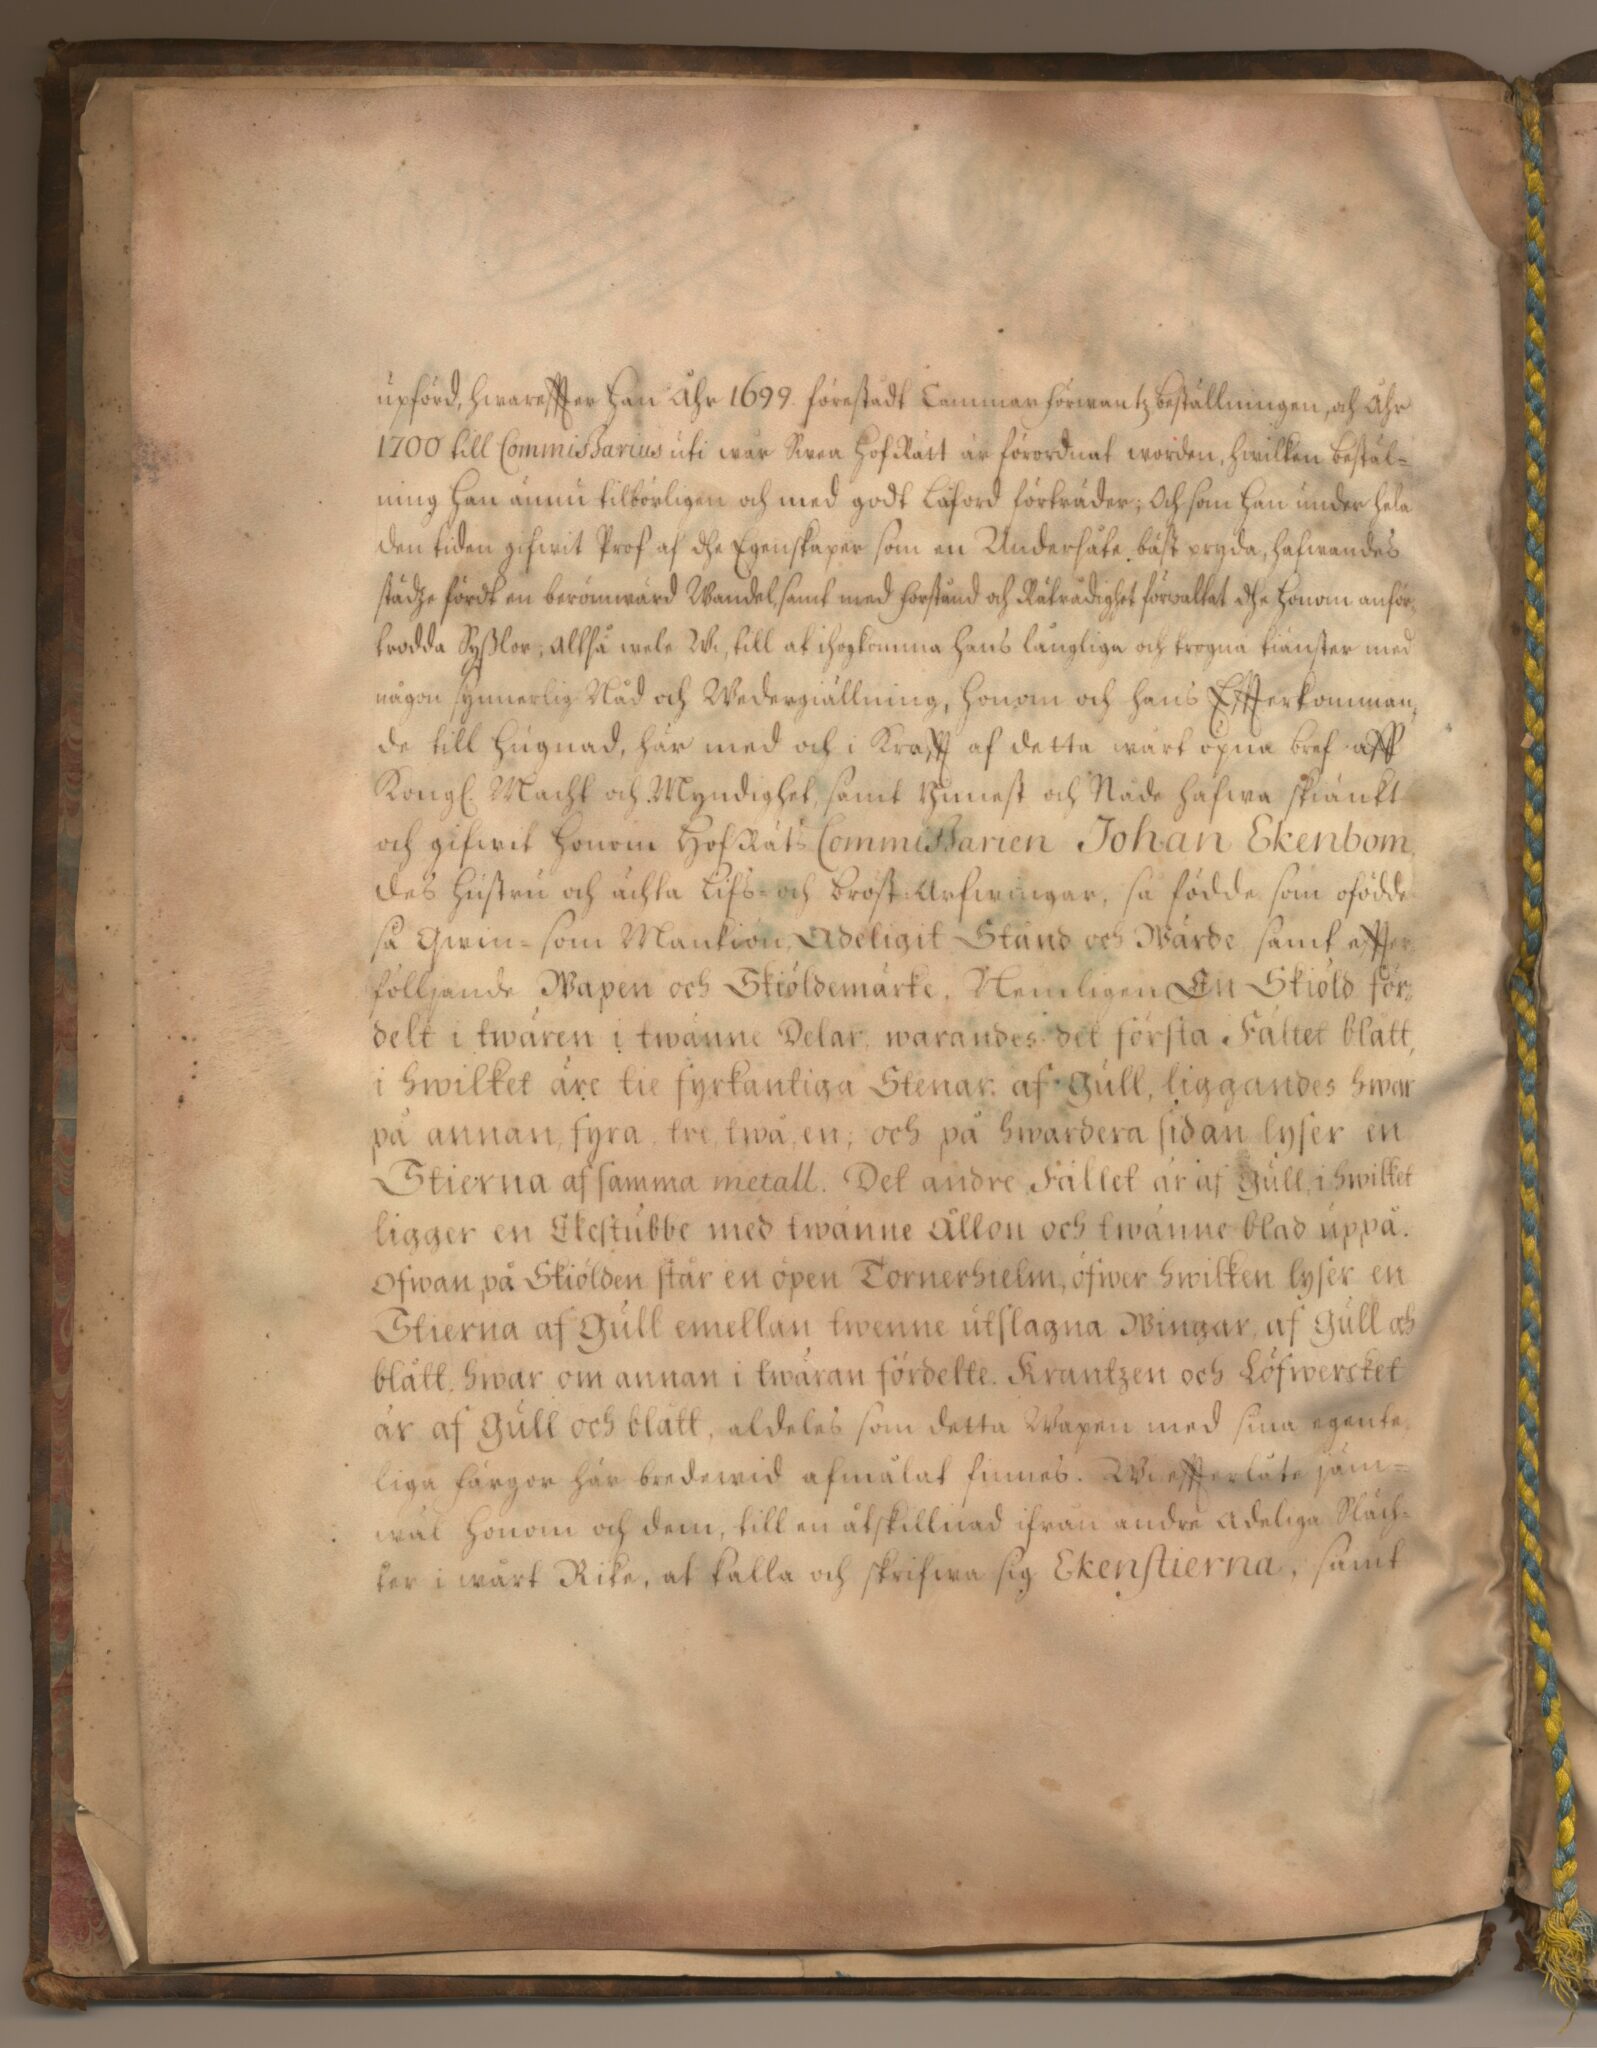 upförd, hwareffter Han Åhr 1699. förestådt Cammarförwantz beställningen, och Åhr
1700 till Commissarius uti wår Swea HofRätt är förordnat worden, hwilken bestäl-
ning Han ännu tilbörligen och med godt Låford förträder; Och som Han under hela
den tiden gifwit Prof af dhe Egenskaper som en Undersåte bäst pryda, hafwandes
städze fördt en berömwärd Wandel, samt med förstånd och Rätrådighet förwaltat dhe Honom anför-
trodda Syßlor; Altså wele Wi, till at ihogkomma Hans långliga och trogna tiänster med
någon synnerlig Nåd och Wedergiällning, Honom och Hans Effterkomman-
de till Hugnad, här med och i Krafft af detta wårt öpna bref aff
Kongl. Macht och Myndighet, samt Ynnest och Nåde hafwa skiänkt
och gifwit Honom HofRäts Commissarien Johan Ekenbom,
des Hustru och ächta Lifs- och Bröst-Arfwingar, så födde som ofödde
så Qwin- som Mankiön, Adeligit Stånd och Wärde, samt effter
följjande Wapen och Skiöldemärke, Nemligen En Skiöld för-
delt i twären i twänne Delar, warandes det första Fältet blått,
i hwilket äre tie fyrkantiga Stenar, af Gull, liggandes hwar
på annan, fyra, tre, twå, en; och på hwardera sidan lyser en
Stierna af samma metall. Det andre Fältet är af Gull, i hwilket
ligger en Ekestubbe med twänne Ållon och twänne blad uppå.
Ofwan på Skiölden står en öpen Tornerhielm, öfwer hwilken lyser en
Stierna af Gull emellan twenne utslagna Wingar, af Gull och
blått, hwar om annan i twäran fördelte. Krantzen och Löfwercket
är af Gull och blått, aldeles som detta Wapen med sina egente-
liga färgor här bredewid afmålat finnes. Wi effterlåte jäm-
wäl Honom och dem, till en åtskillnad ifrån andre Adeliga Släch-
ter i wårt Rike, at kalla och skrifwa sig Ekenstierna, samt